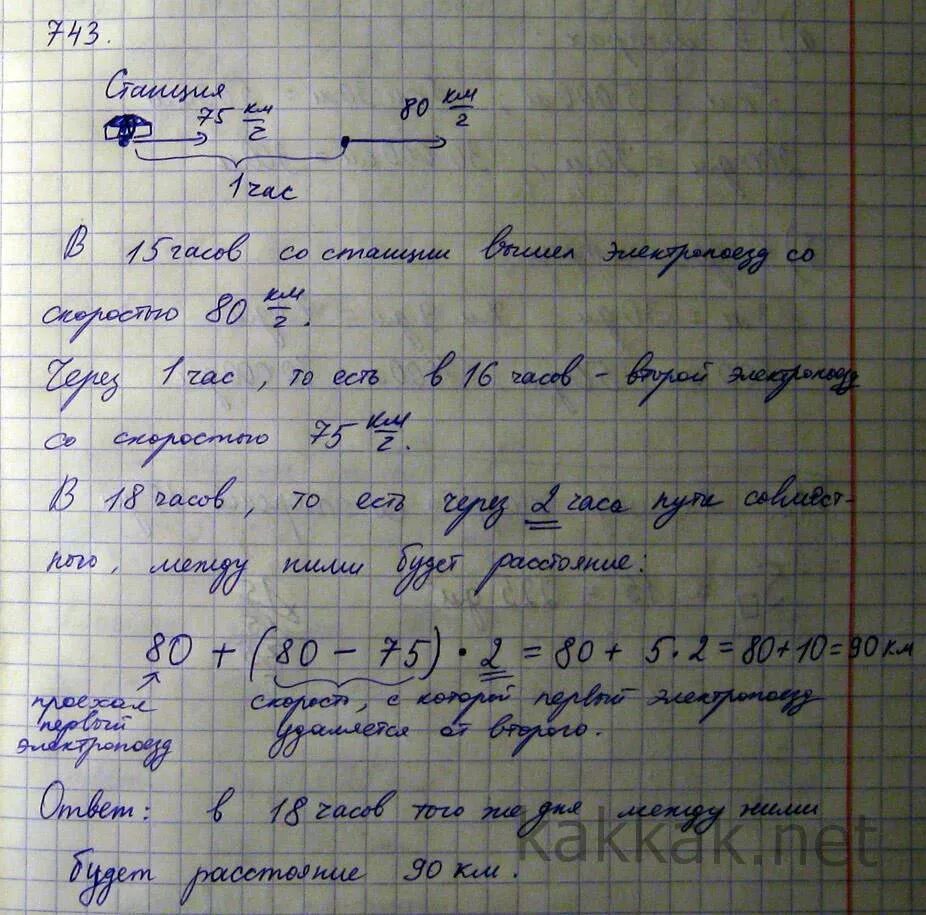 743.
Станция
75 км/г
80 км/г
1 час
В 15 часов со станции вышел электропоезд со
скоростью 80 км/г.
Через 1 час, то есть в 16 часов – второй электропоезд
со скоростью 75 км/г.
В 18 часов, то есть через 2 часа пути совмест-
ного, между ними будет расстояние:
80 + (80 – 75) · 2 = 80 + 5 · 2 = 80 + 10 = 90 км
проехал
первый
электропоезд
скорость, с которой первый электропоезд
удаляется от второго.
Ответ: в 18 часов того же дня между ними
будет расстояние 90 км.
kakkak.net